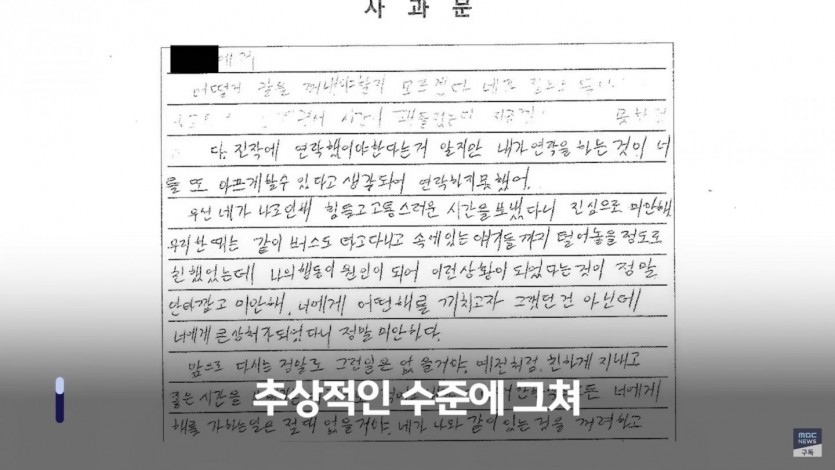 사 과 문
에게
어떻게 말을 꺼내야할지 모르겠다 네가
시간이
다 진작에 연락했어야한다는거 알지만 내가 연락을 하는 것이 너
를 또 아프게할수 있다고 생각되어 연락하지못했어.
우선 네가 나로인해 힘들고 고통스러운 시간을 보냈다니 진심으로 미안해
우리 한 때는 같이 버스도 타고다니고 속에있는 얘기들 까지 털어놓을 정도로
친했었는데 나의 행동이 원인이 되어 이런상황이 되었다는것이 정말
안타깝고 미안해. 너에게 어떤해를 끼치고자 그랬던건 아닌데
너에게 큰상처가되었다니 정말 미안하다.
앞으로 다시는 정말로 그런일은 없을거야. 예전처럼, 친하게 지내고
좋은 시간을 너에게
추상적인 수준에 그쳐
해를 가하는일은 절때 없을거야. 네가 나와 같이 있는 것을 꺼려하고
MBC
NEWS
구독